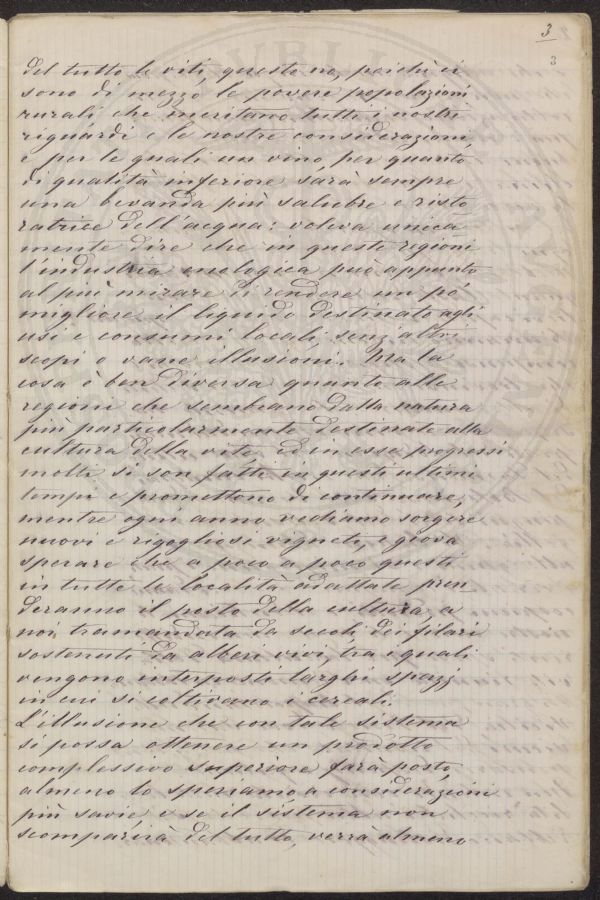 3
3
del tutto le viti, questo no, poichè ci
sono di mezzo le povere popolazioni
rurali che meritano tutti i nostri
riguardi e le nostre considerazioni,
e per le quali un vino, per quanto
di qualità inferiore sarà sempre
una bevanda più salubre e risto
ratrice dell'acqua: voleva unica
mente dire che in queste regioni
l'industria enologica può appunto
al più mirare di rendere un pò
migliore il liquido destinato agli
usi e consumi locali, senz'altri
scopi o vane illusioni. Ma la
cosa è ben diversa quanto alle
regioni che sembrano dalla natura
più particolarmente destinate alla
cultura della vite ed in esse progressi
molti si son fatti in questi ultimi
tempi e promettono di continuare,
mentre ogni anno vediamo sorgere
nuovi e rigogliosi vigneti, e giova
sperare che a poco a poco questi
in tutte le località adattate pren_
deranno il posto della cultura, a
noi tramandata da secoli, dei filari
sostenuti da alberi vivi, tra i quali
vengono interposti larghi spazj
in cui si coltivano i cereali.
L'illusione che con tale sistema
si possa ottenere un prodotto
complessivo superiore farà posto,
almeno lo speriamo, a considerazioni
più savie e se il sistema non
scomparirà del tutto, verrà almeno